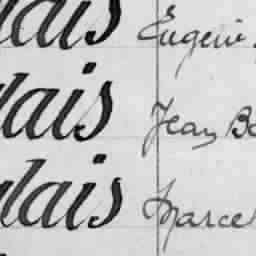 lais Eugène
lais Jean Ba
lais Marcel